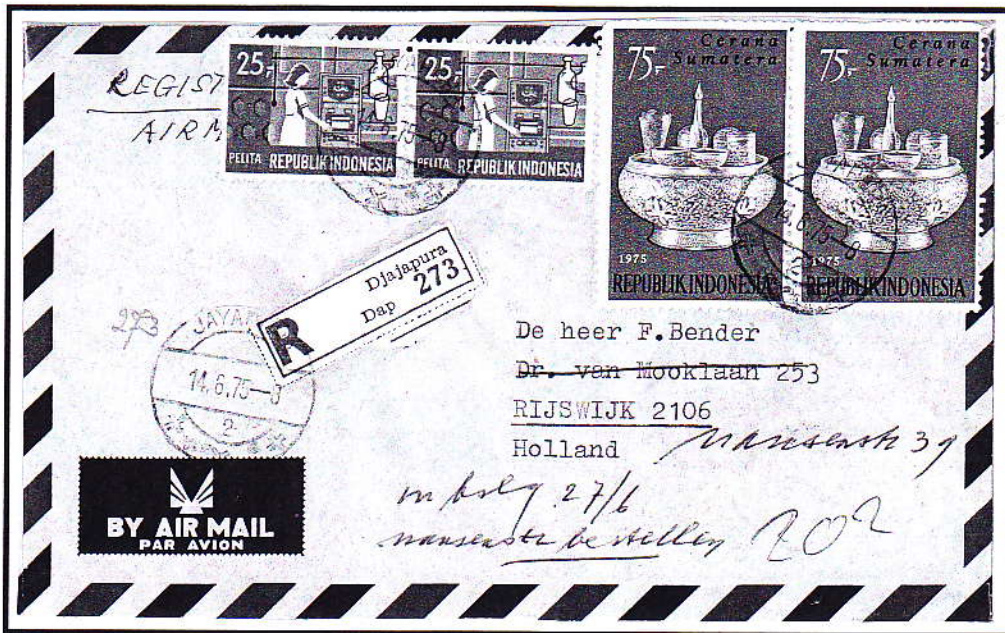 REGIST
AIRM
25,-
PELITA REPUBLIK INDONESIA
25,-
PELITA REPUBLIK INDONESIA
75,-
Cerana
Sumatera
1975
REPUBLIK INDONESIA
75,-
Cerana
Sumatera
1975
REPUBLIK INDONESIA
14.6.75-8
R
Djajapura
Dap 273
273
JAYAP
14.6.75-8
2
De heer F.Bender
Dr. van Mooklaan 253
RIJSWIJK 2106
Holland
Nansenstr 39
27/6
nansenstr bestellen
BY AIR MAIL
PAR AVION